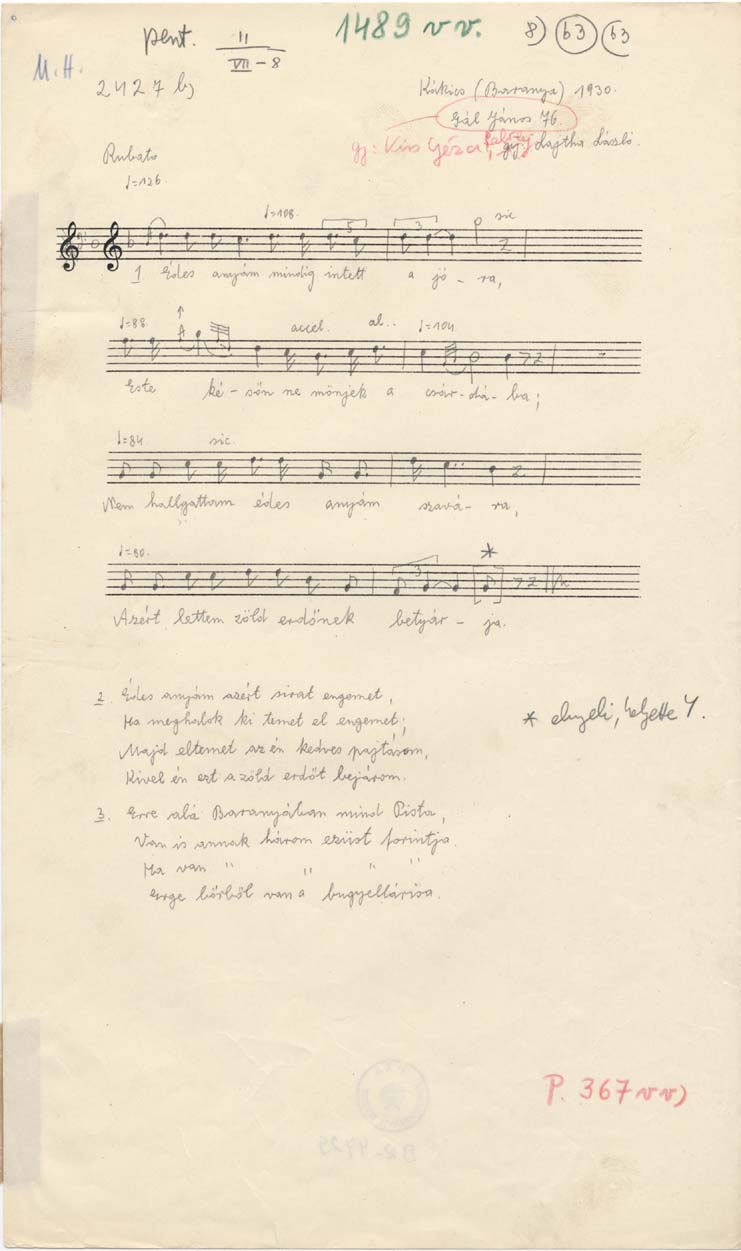 pent. II
VII - 8
1489 vv.
8) 63 63
M. H.
2427 b)
Kákics (Baranya) 1930.
Gál János 76.
gy: Kiss Géza gy. Lajtha László.
Rubato
♩=126.
♩=108. 5 3 sic
1 Édes anyám mindig intett a jó - ra,
♩=88. accel. al.. ♩=104
Este ké - sőn ne mönjek a csár - dá - ba;
♩=84 sic.
Nem hallgattam édes anyám szavá - ra,
♩=80. 3 *
Azért lettem zöld erdőnek betyár - ja.
2. Édes anyám azért sirat engemet,
Ha meghalok ki temet el engemet;
Majd eltemet az én kedves pajtásom,
Kivel én ezt a zöld erdőt bejárom.
* elnyeli, helyette
3. Erre alá Baranyában mind Pista,
Van is annak három ezüst forintja.
Ha van " " " "
Erge bőrből van a bugyellárisa.
P. 367 vv)